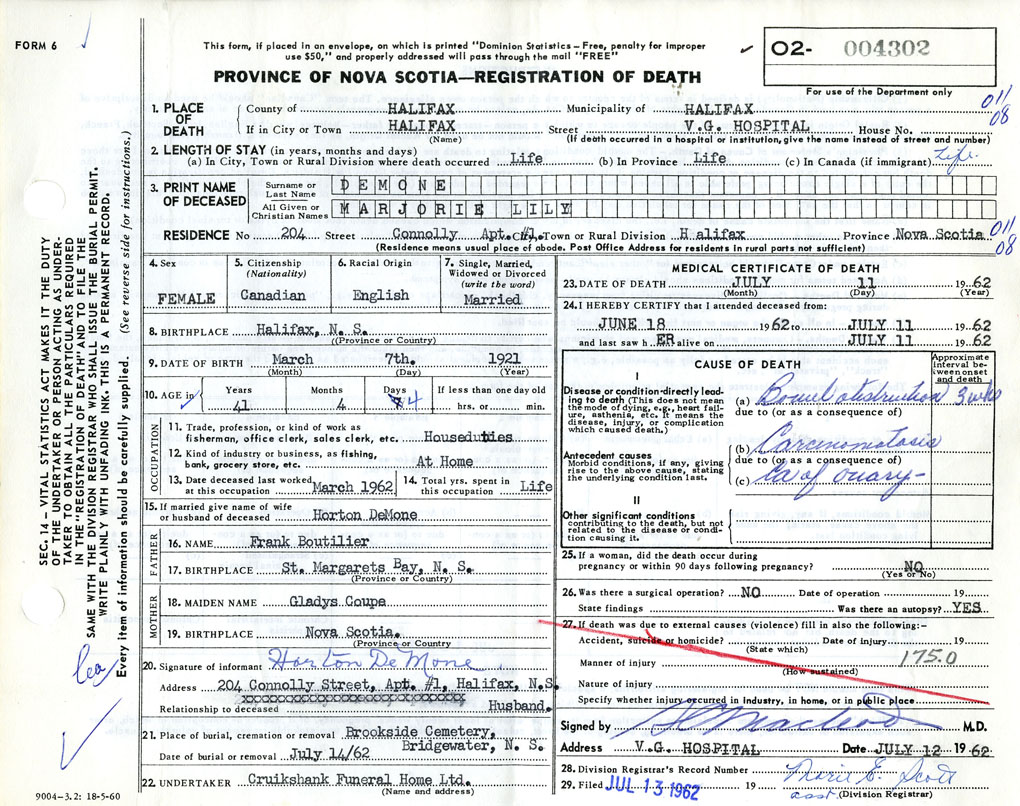 FORM 6
This form, if placed in an envelope, on which is printed "Dominion Statistics—Free, penalty for improper
use $50," and properly addressed will pass through the mail "FREE"
PROVINCE OF NOVA SCOTIA—REGISTRATION OF DEATH
O2- 004302
For use of the Department only
011
08
1. PLACE OF DEATH
County of HALIFAX Municipality of HALIFAX
If in City or Town HALIFAX Street V.G. HOSPITAL House No.
(Name) (If death occurred in a hospital or institution, give the name instead of street and number)
2. LENGTH OF STAY (in years, months and days)
(a) In City, Town or Rural Division where death occurred Life (b) In Province Life (c) In Canada (if immigrant) Life.
3. PRINT NAME OF DECEASED
Surname or Last Name DEMONE
All Given or Christian Names MARJORIE LILY
RESIDENCE No 204 Street Connolly Apt. #1, City, Town or Rural Division Halifax Province Nova Scotia
011
08
(Residence means usual place of abode. Post Office Address for residents in rural parts not sufficient)
4. Sex
FEMALE
5. Citizenship
(Nationality)
Canadian
6. Racial Origin
English
7. Single, Married,
Widowed or Divorced
(write the word)
Married
8. BIRTHPLACE Halifax, N. S.
(Province or Country)
9. DATE OF BIRTH March 7th. 1921
(Month) (Day) (Year)
10. AGE in
Years Months Days If less than one day old
41 4 4 hrs. or min.
OCCUPATION
11. Trade, profession, or kind of work as
fisherman, office clerk, sales clerk, etc. Houseduties
12. Kind of industry or business, as fishing,
bank, grocery store, etc. At Home
13. Date deceased last worked
at this occupation March 1962
14. Total yrs. spent in
this occupation Life
15. If married give name of wife
or husband of deceased Horton DeMone
FATHER
16. NAME Frank Boutilier
17. BIRTHPLACE St. Margarets Bay, N. S.
(Province or Country)
MOTHER
18. MAIDEN NAME Gladys Coupe
19. BIRTHPLACE Nova Scotia.
(Province or Country
20. Signature of informant Horton DeMone
Address 204 Connolly Street, Apt. #1, Halifax, N.S.
Relationship to deceased Husband.
21. Place of burial, cremation or removal Brookside Cemetery,
Bridgewater, N. S.
Date of burial or removal July 14/62
22. UNDERTAKER Cruikshank Funeral Home Ltd.
(Name and address)
9004-3.2: 18-5-60
MEDICAL CERTIFICATE OF DEATH
23. DATE OF DEATH JULY 11 1962
(Month) (Day) (Year)
24. I HEREBY CERTIFY that I attended deceased from:
JUNE 18 1962 to JULY 11 1962
and last saw hER alive on JULY 11 1962
CAUSE OF DEATH
Approximate
interval between
onset
and death
I
Disease or condition directly leading
to death (This does not mean
the mode of dying, e.g., heart failure,
asthenia, etc. It means the
disease, injury, or complication
which caused death.)
(a) Bowel obstruction 3 wks
due to (or as a consequence of)
Antecedent causes
Morbid conditions, if any, giving
rise to the above cause, stating
the underlying condition last.
(b) Carcinomatosis
due to (or as a consequence of)
(c) Ca of ovary-
II
Other significant conditions
contributing to the death, but not
related to the disease or condition
causing it.
25. If a woman, did the death occur during
pregnancy or within 90 days following pregnancy? NO
(Yes or No)
26. Was there a surgical operation? NO Date of operation 19
State findings Was there an autopsy? YES
27. If death was due to external causes (violence) fill in also the following:-
Accident, suicide or homicide? Date of injury 19
(State which)
175.0
Manner of injury
(How sustained)
Nature of injury
Specify whether injury occurred in industry, in home, or in public place
Signed by M.D.
Address V.G. HOSPITAL Date JULY 12 1962
28. Division Registrar's Record Number
29. Filed JUL 13 1962 19 Marie E. Scott
asst. (Division Registrar)
SEC. 14 – VITAL STATISTICS ACT MAKES IT THE DUTY
OF THE UNDERTAKER OR PERSON ACTING AS UNDERTAKER
TO OBTAIN ALL THE PARTICULARS REQUIRED
IN THE "REGISTRATION OF DEATH" AND TO FILE THE
SAME WITH THE DIVISION REGISTRAR WHO SHALL ISSUE THE BURIAL PERMIT.
WRITE PLAINLY WITH UNFADING INK. THIS IS A PERMANENT RECORD.
Every item of information should be carefully supplied. (See reverse side for instructions.)